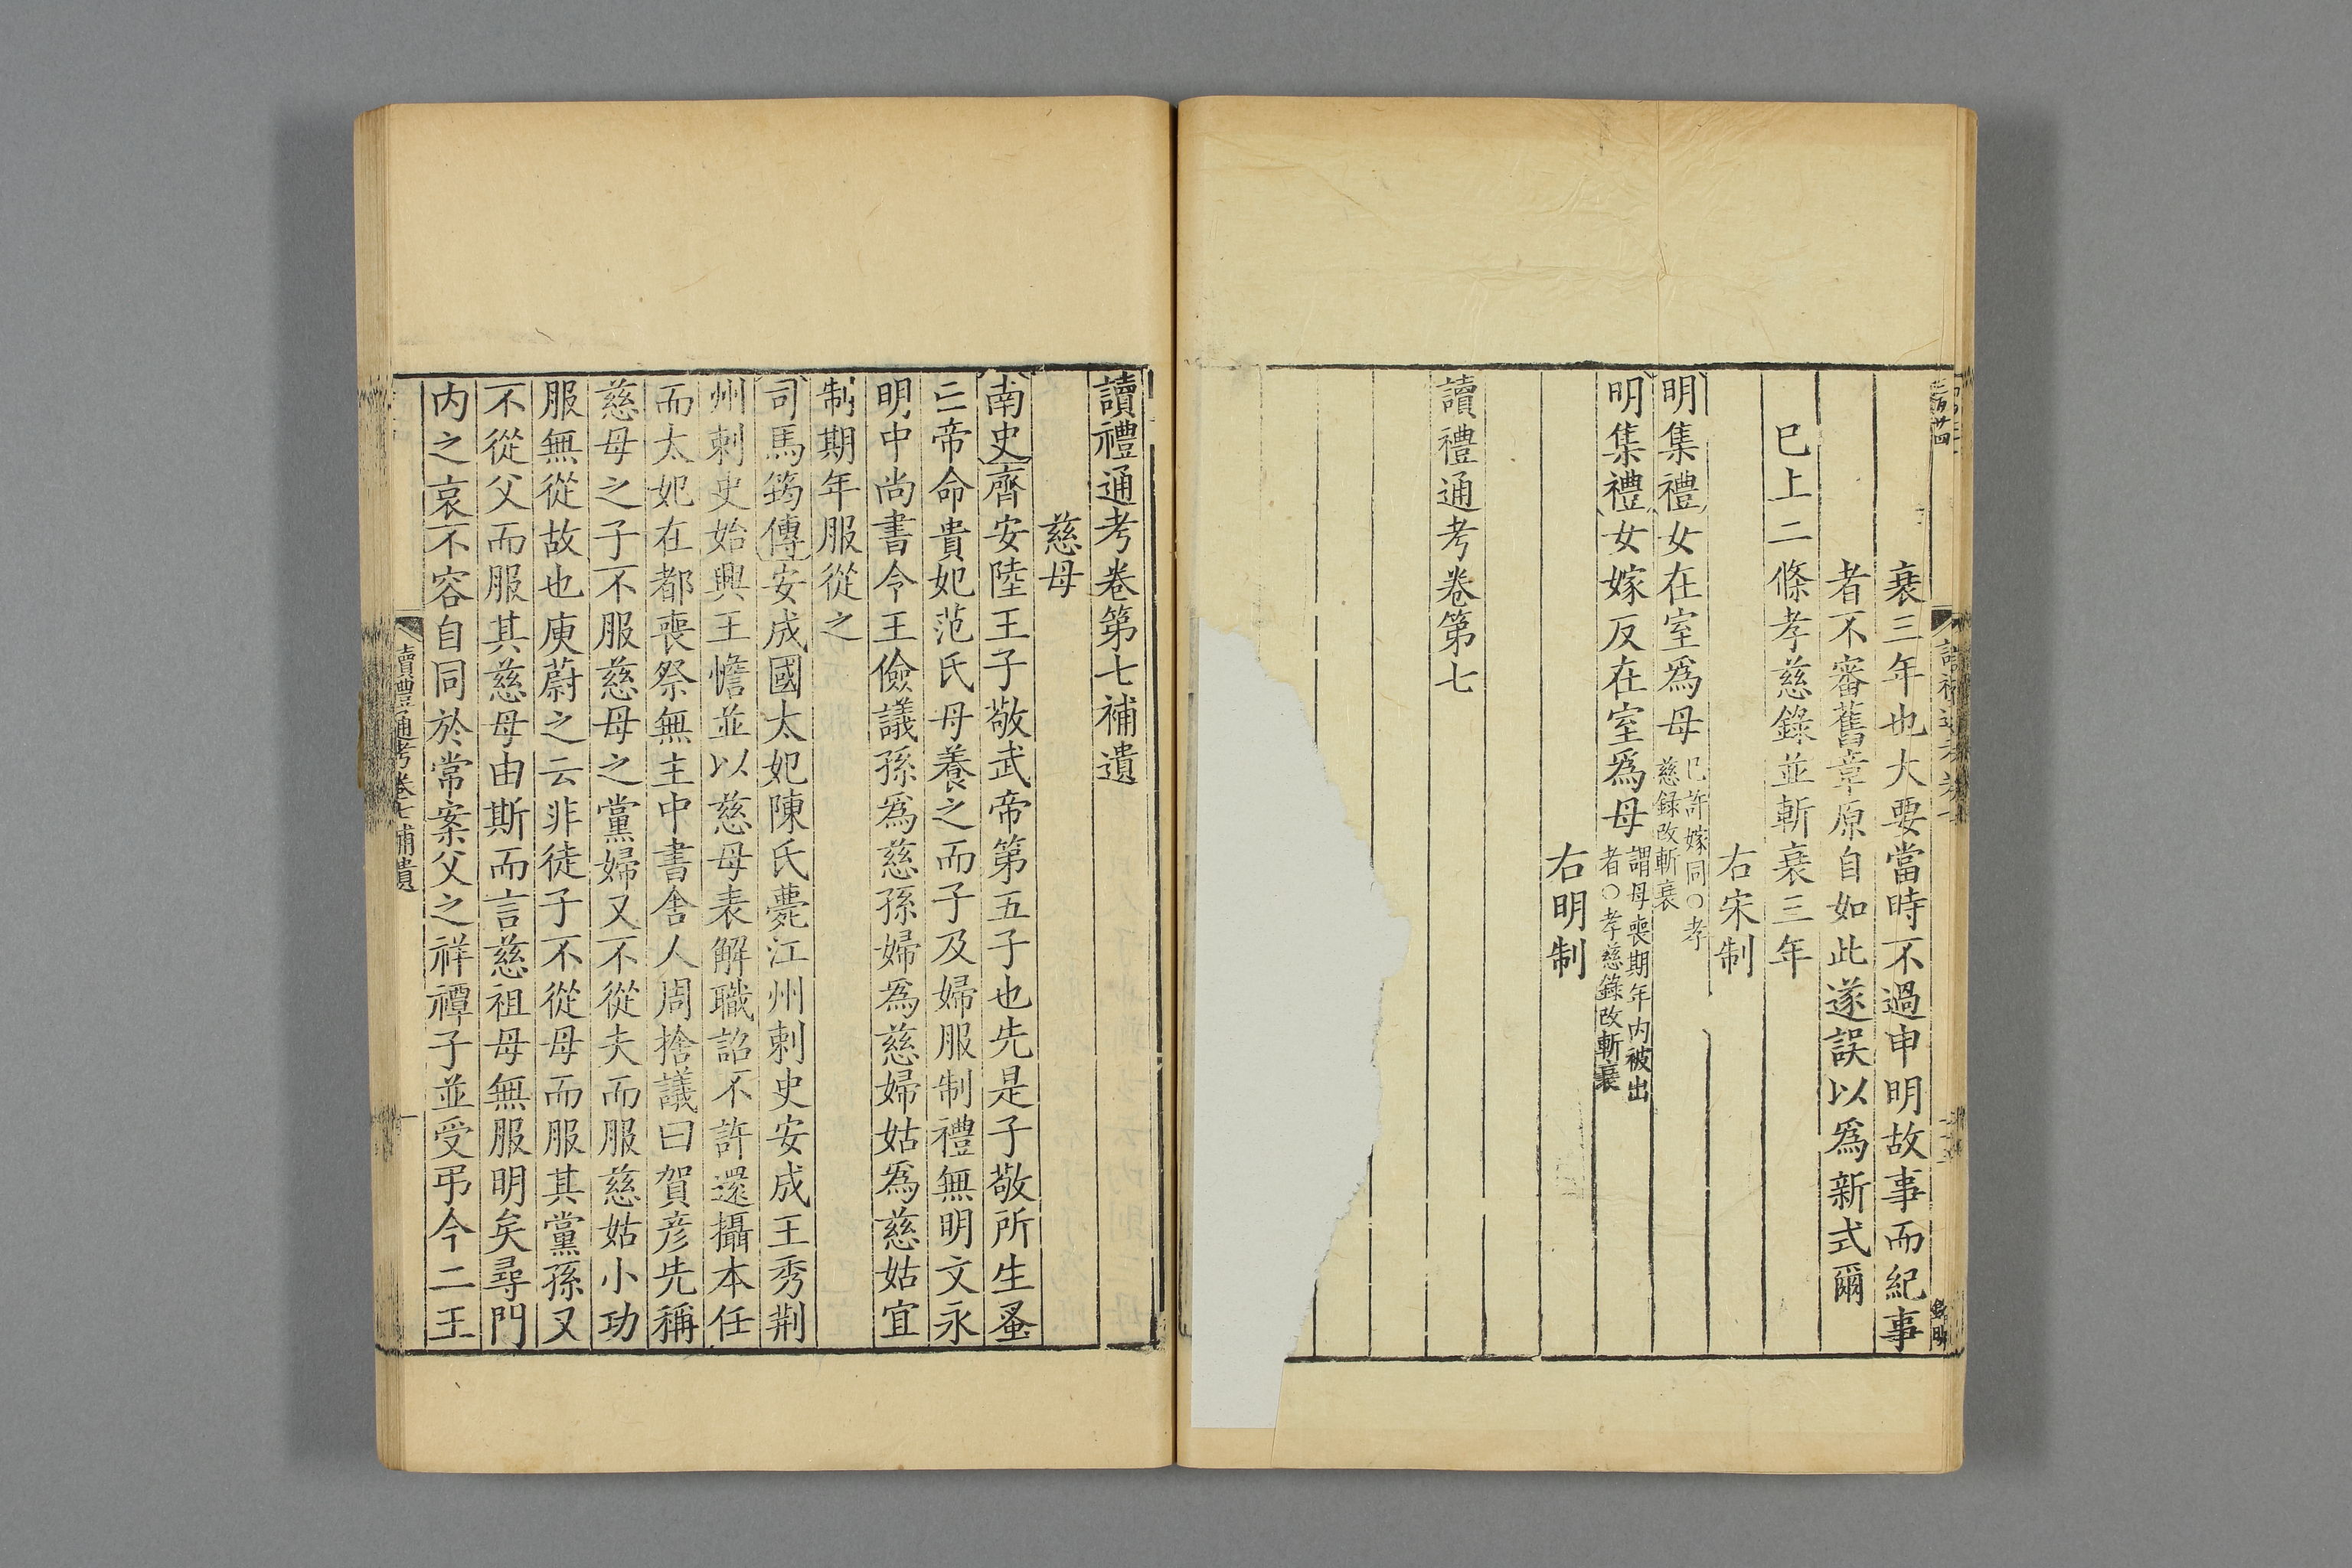 衰三年也大要當時不過申明故事而紀事
者不審舊章原自如此遂誤以爲新式爾
巳上二條孝慈錄並斬衰三年
右宋制
明集禮女在室爲母巳許嫁同○孝
慈録改斬衰
明集禮女嫁反在室爲母謂母喪期年内被出
者○孝慈錄改斬衰
右明制
讀禮通考卷第七
讀禮通考卷第七補遺
慈母
南史齊安陸王子敬武帝第五子也先是子敬所生蚤
亡帝命貴妃范氏母養之而子及婦服制禮無明文永
明中尚書令王儉議孫爲慈孫婦爲慈婦姑爲慈姑宜
制期年服從之
司馬筠傳安成國太妃陳氏薨江州刺史安成王秀荆
州刺史始興王憺並以慈母表解職詔不許還攝本任
而太妃在都喪祭無主中書舍人周捨議曰賀彦先稱
慈母之子不服慈母之黨婦又不從夫而服慈姑小功
服無從故也庾蔚之云非徒子不從母而服其黨孫又
不從父而服其慈母由斯而言慈祖母無服明矣尋門
内之哀不容自同於常案父之祥禫子並受弔今二王
讀禮通考卷七補遺
一